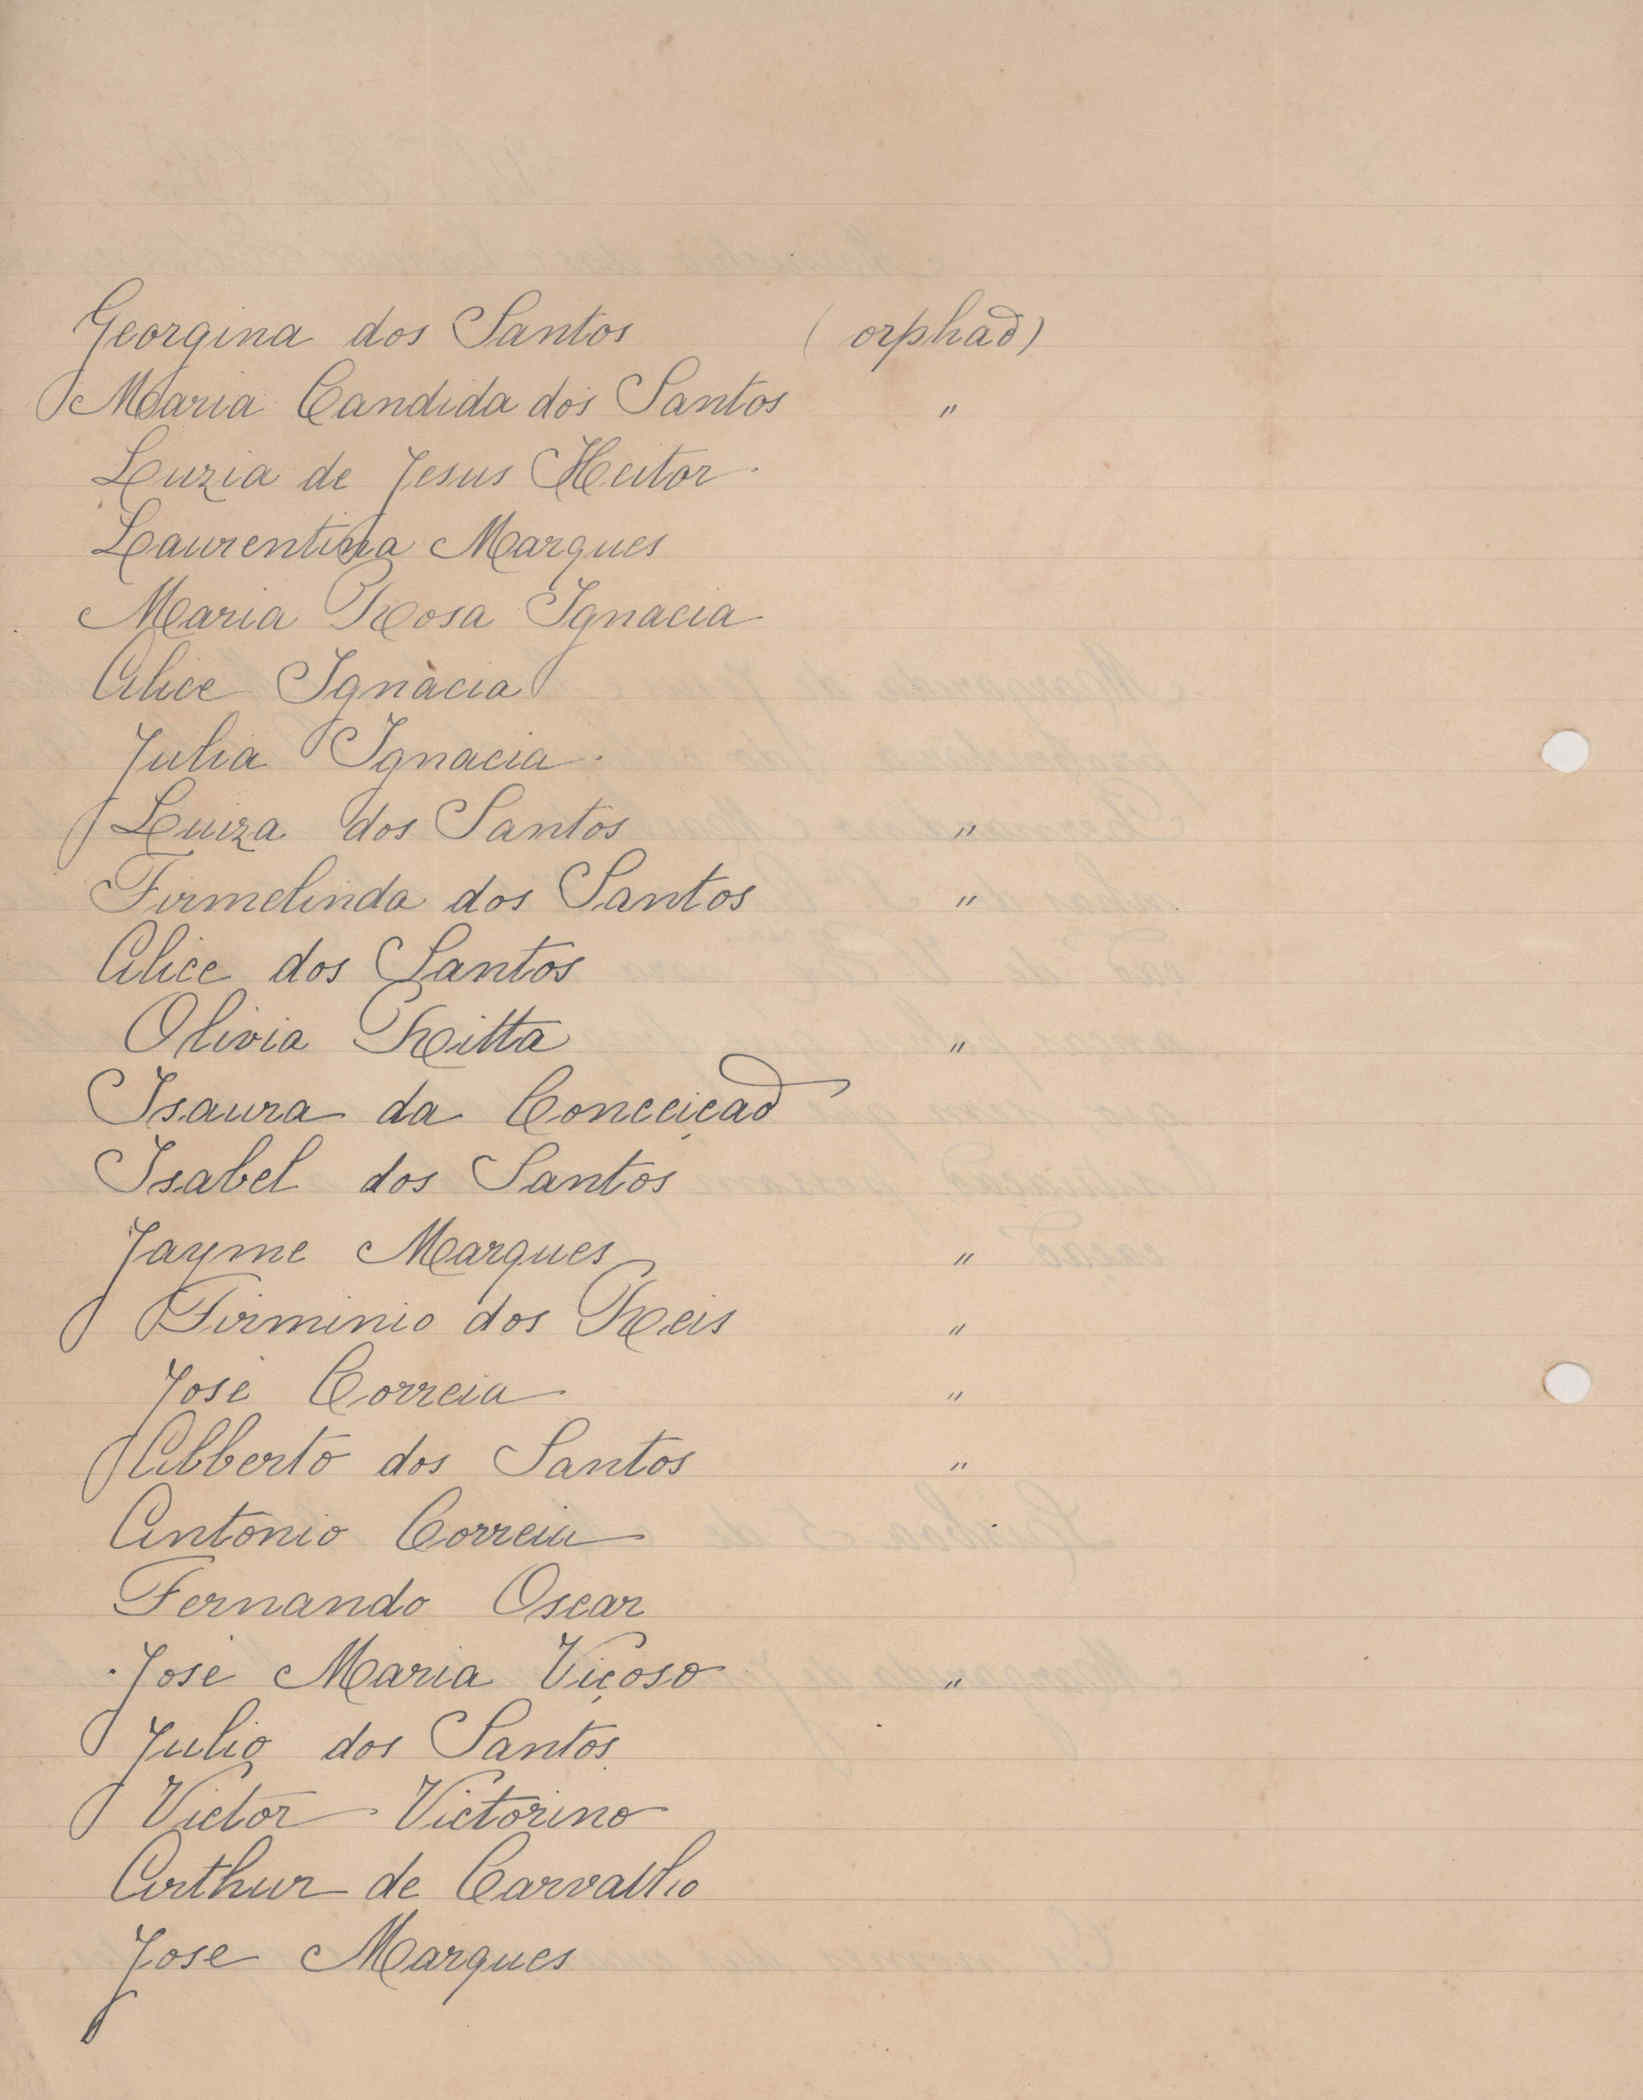 Georgina dos Santos ( orphaõ)
Maria Candida dos Santos "
Luzia de Jesus Heitor
Laurentina Marques
Maria Rosa Ignacia
Alice Ignàcia
Julia Ignacia
Luiza dos Santos "
Firmelinda dos Santos "
Alice dos Santos
Olivia Ritta "
Isaura da Conceiçaõ
Isabel dos Santos
Jayme Marques "
Firminio dos Reis "
José Correia "
Alberto dos Santos "
Antonio Correia
Fernando Oscar
José Maria Viçoso "
Julio dos Santos
Victor Victorino
Arthur de Carvalho
Jose Marques